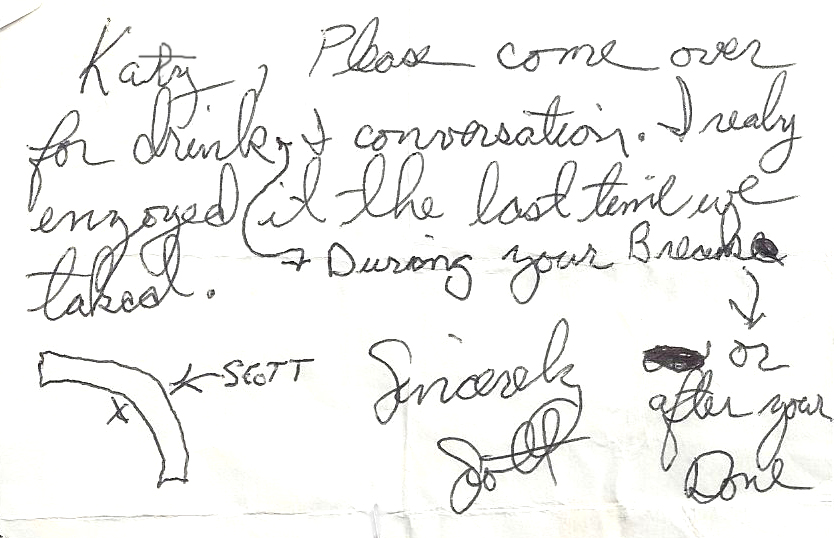 Katy, Please come over
for drinks & conversation. I realy
enzoyed it the last time we
taked.
→ During your Break
or
after your
Done
← SCOTT
X
Sincerely
Scott